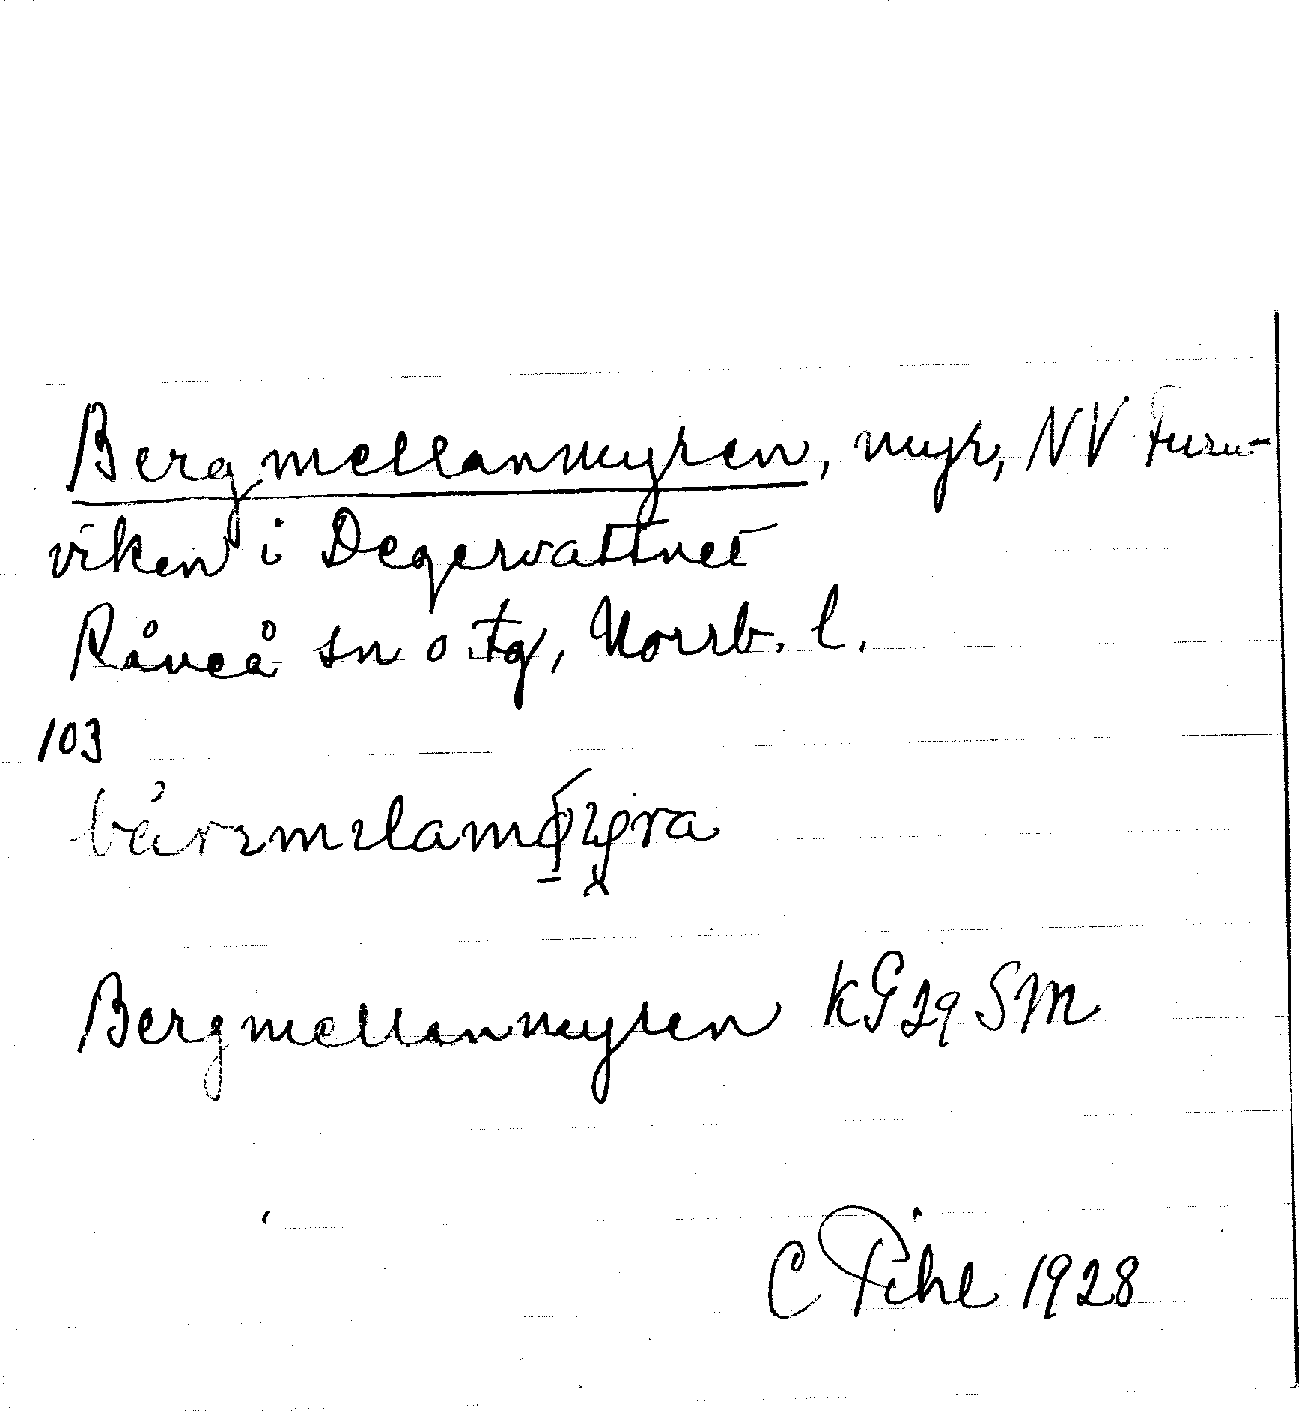 Bergmellanmyren, myr, NV Furu-
viken i Degervattnet
Råneå sn o. tg, Norrb. l.
103
Bergmellanmyren KG 29 SM
C Pihl 1928